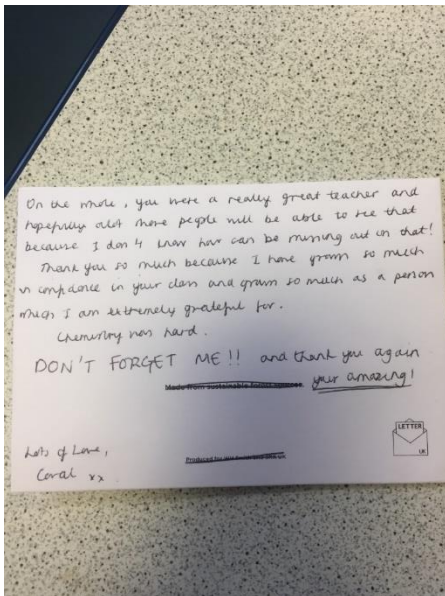 On the whole, you were a really great teacher and
hopefully alot more people will be able to see that
because I don't know how can be missing out on that!
Thank you so much because I have grown so much
in confidance in your class and grown so much as a person
which I am extremely grateful for.
Chemistry was hard.
DON'T FORGET ME!! and thank you again
your amazing!
Made from sustainable
Lots of Love,
Coral xx
Produced for
LETTER
UK